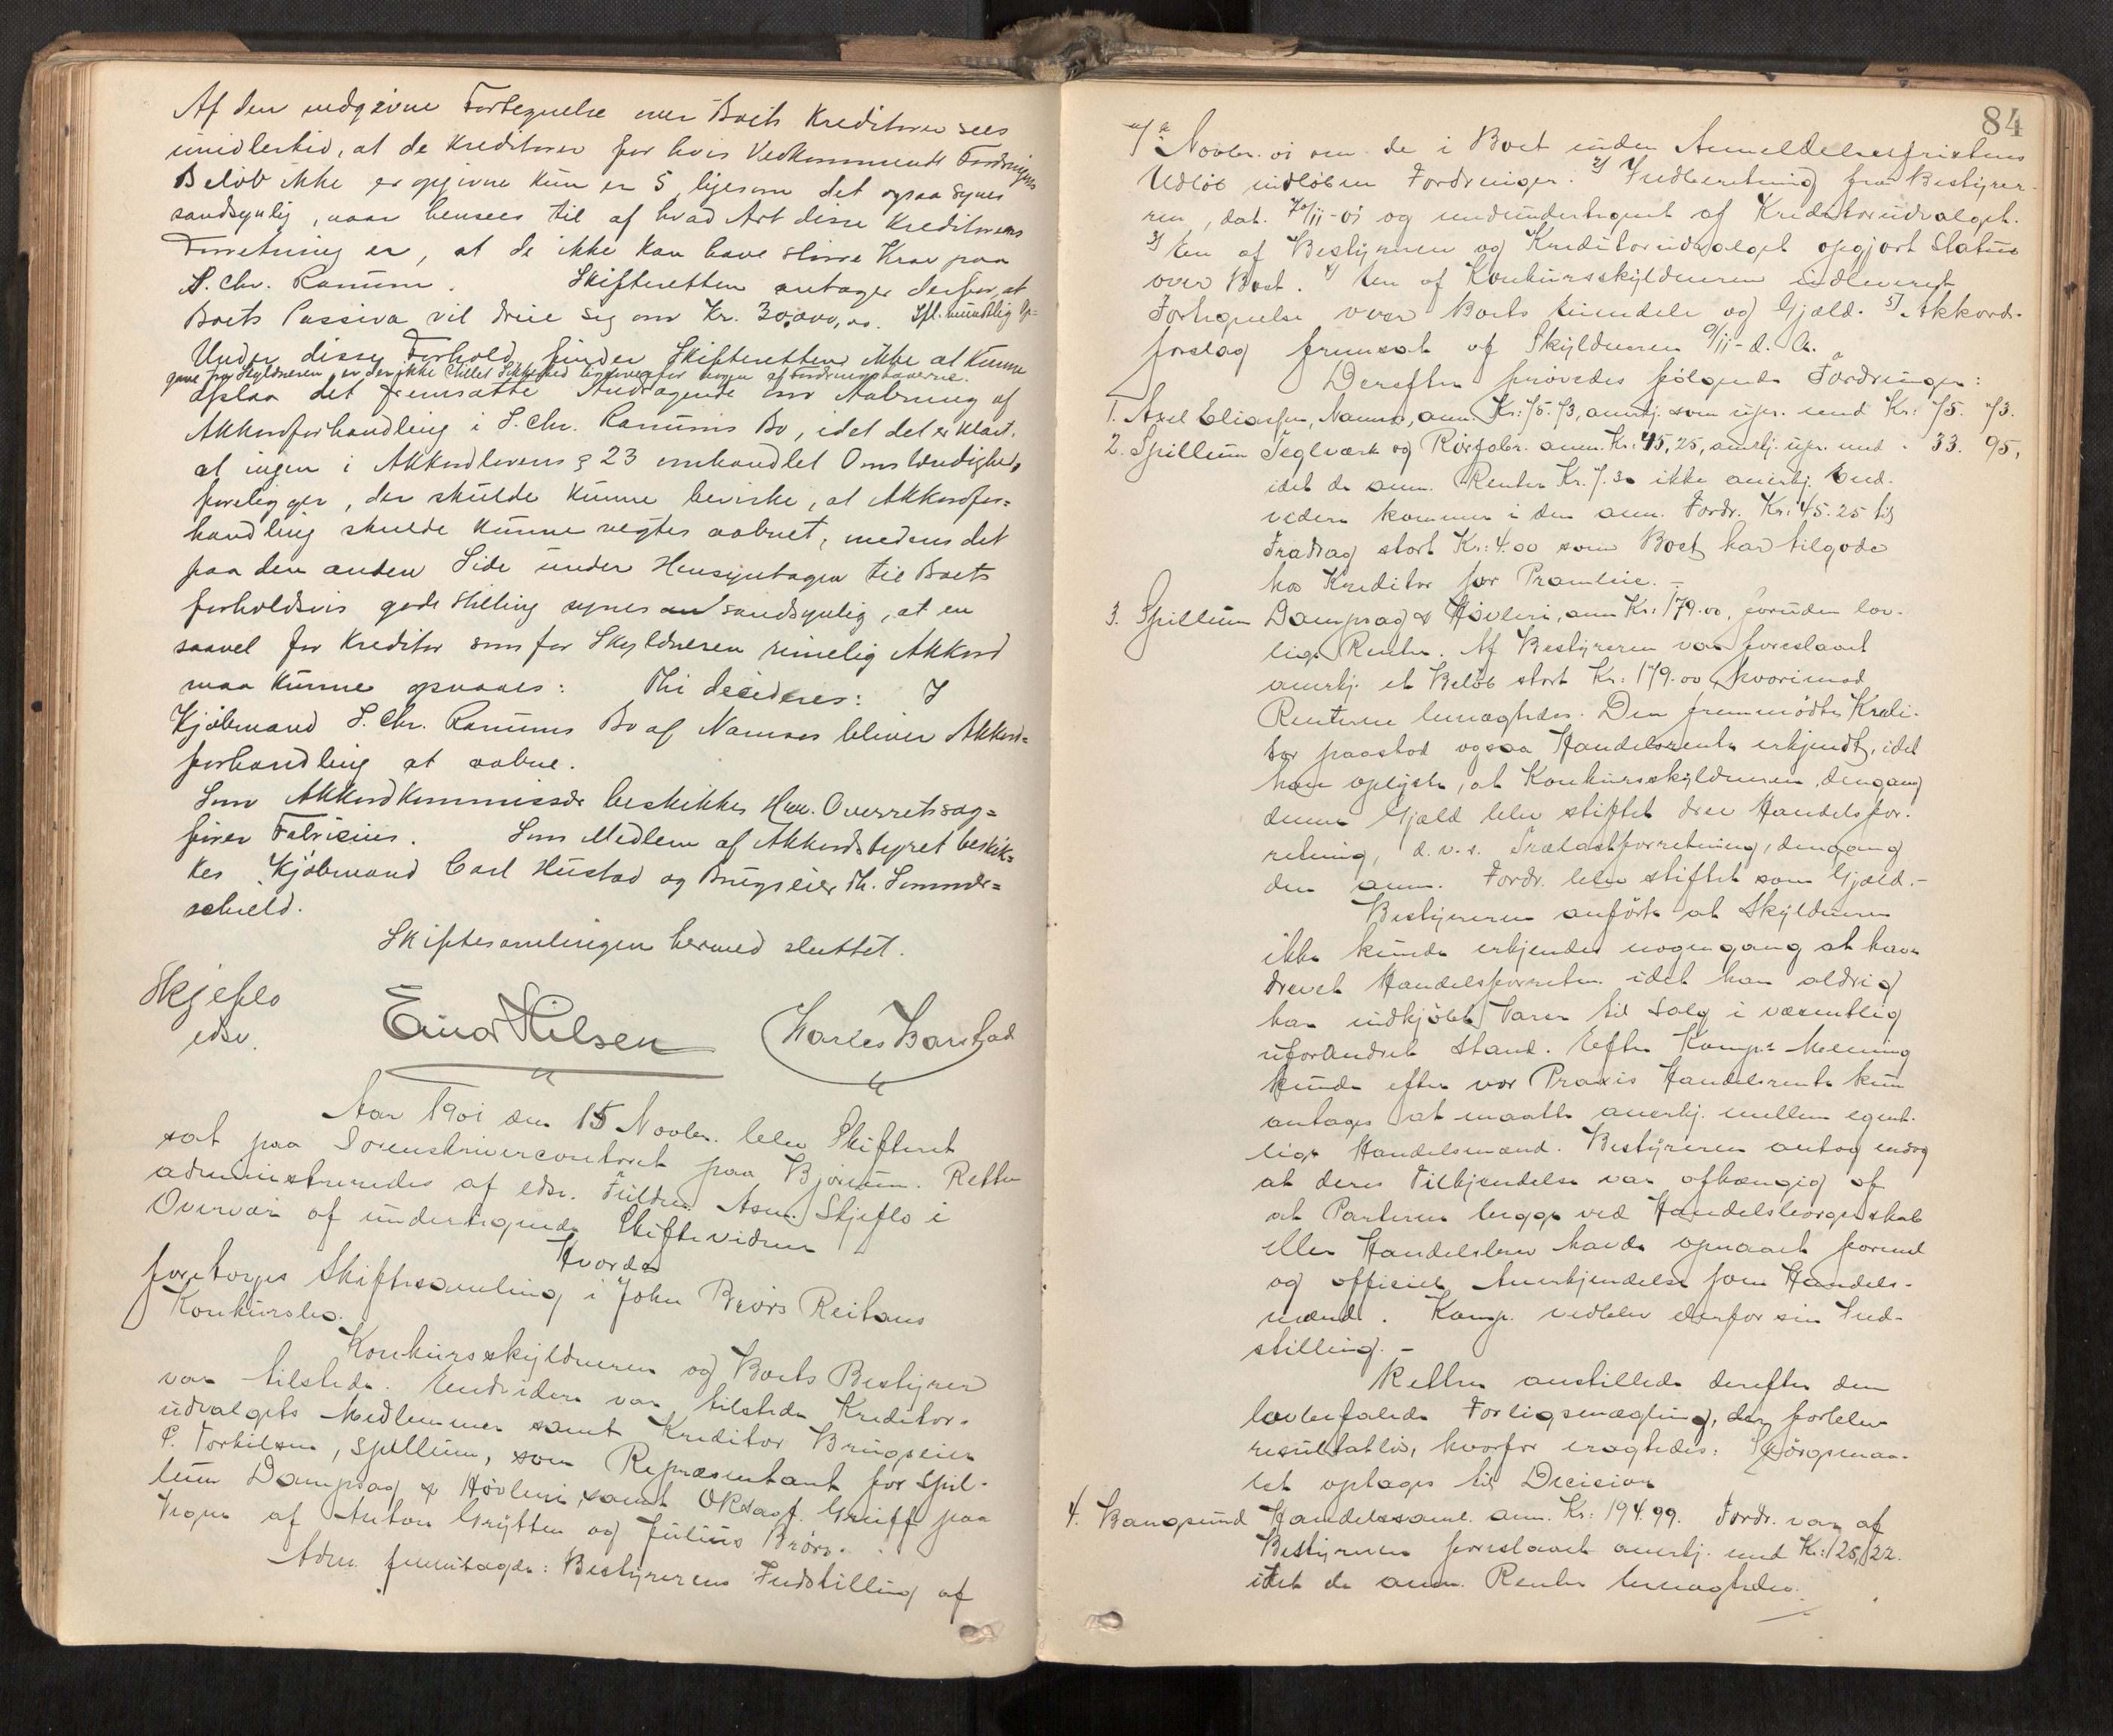 Af den medgivne Fortegnelse over Boets Kreditorer sees
imidlertid, at de Kreditorer for hvis Vedkommende Fordringens
Beløb ikke er opgivne kun er 5, ligesom det ogsaa synes
sandsynlig, naar hensees til af hvad Art disse Kreditorers
Forretning er, at de ikke kan have større Krav paa
S. Chr. Ranum. Skifteretten antager derfor, at
Boets Passiva vil dreie sig om Kr. 30,000,00. Ifl. mundtlig Op=
gave fra Skyldneren er der ikke stillet Sikkerhed ligeoverfor nogen af Fordringshaverne.
Under disse Forhold finder Skifteretten ikke at kunne
afslaa det fremsatte Andragende om Aabning af
Akkordforhandling i S. Chr. Ranums Bo, idet det er klart,
at ingen i Akkordlovens § 23 omhandlet Omstændighed
foreligger, der skulde kunne bevirke, at Akkordfor=
handling skulde kunne negtes aabnet, medens det
paa den anden Side under Hensyntagen til Boets
forholdsvis gode Stilling synes sandsynlig, at en
saavel for Kreditor som for Skyldneren rimelig Akkord
maa kunne opnaaes: Thi decideres: I
Kjøbmand S. Chr. Ranums Bo af Namsos bliver Akkord=
forhandling at aabne.
Som Akkordkommissær beskikkes Hrr. Overretssag=
fører Fabricius. Som Medlem af Akkordstyret beskik=
kes Kjøbmand Carl Hustad og Brugseier Th. Sommer=
schield.
Skiftesamlingen hermed sluttet.
Skjeflo
edsv.
Einar Nilsen Charles Barstad
Aar 1901 den 15 Novbr. blev Skifteret
sat paa Sorenskrivercontoret paa Bjørum. Retten
administreredes af edsv. Fuldm. Asm. Skjeflo i
Overvær af undertegnede Skiftevidner
Hvorda
foretoges Skiftesamling i John Brørs Reitans
Konkursbo.
Konkursskyldneren og Boets Bestyrer
var tilstede. Endvidere var tilstede Kreditor-
udvalgets Medlemmer samt Kreditor Brugseier
P. Torkilsen, Spillum, som Repræsentant for Spil-
lum Dampsag & Høvleri, samt ORsagf. Greiff paa
Vegne af Anton Grytten og Julius Brørs.
Adm. fremlagde: Bestyrerens Indstilling af
84
Novbr. 01 om de i Boet inden Anmeldelsesfristens
Udløb indløbne Fordringer. 2) Indberetning fra Bestyrer-
ren, dat. /11-01 og medundertegnet af Kreditorudvalget.
3) En af Bestyreren og Kreditorudvalget opgjort Status
over Boet. 4) En af Konkursskyldneren indleveret
Fortegnelse over Boets Eiendele og Gjæld. 5) Akkord-
forslag fremsat af Skyldneren 9/11 d. A.
Derefter prøvedes følgende Fordringer:
1. Axel Eliassen, Namsos, anm. Kr: 75.73, anerkj. som upr. med Kr: 75. 73.
2. Spillum Teglværk og Rørfabr. anm. Kr: 45,25, anerkj. upr. med - 33. 95,
idet de anm. Renter Kr. 7.30 ikke anerkj. End-
videre kommer i den anm. Fordr. Kr: 45.25 til
Fradrag stort Kr: 4.00 som Boet har tilgode
hos Kreditor for Pramleie. -
3. Spillum Dampsag & Høvleri, anm Kr: 179.00, foruden lov-
lige Renter. Af Bestyreren var foreslaaet
anerkj. et Beløb stort Kr: 179.00, hvorimod
Renterne benegtedes. Den fremmødte Kredi-
tor paastod ogsaa Handelsrente erkjendt, idet
han oplyste, at Konkursskyldneren, dengang
denne Gjæld blev stiftet drev Handelsfor-
retning, d. v. s. Trælastforretning, dengang
den anm. Fordr. blev stiftet som Gjæld. -
Bestyreren anførte at Skyldneren
ikke kunde erkjendes nogengang at have
drevet Handelsforretn. idet han aldrig
har indkjøbt Varer til Salg i væsentlig
uforandret Stand. Efter Komp.s Mening
kunde efter vor Praxis Handelsrente kun
antages at maatte anerkj. mellem egent-
lige Handelsmænd. Bestyreren antog endog
at deres Tilkjendelse var afhængig af
at Parterne begge ved Handelsborgerskab
eller Handelsbrev havde opnaaet formel
og officiel Anerkjendelse som Handels-
mænd. Komp. vedblev derfor sin Ind-
stilling. -
Retten anstillede derefter den
lovbefalede Forligsmægling, der forblev
resultatløs, hvorfor eragtedes: Spørgsmaa-
let optages til Decision
4. Bangsund Handelssaml. anm. Kr: 194.99. Fordr. var af
Bestyreren foreslaaet anerkj. med Kr: 125,22.
idet de anm. Renter benegtedes.